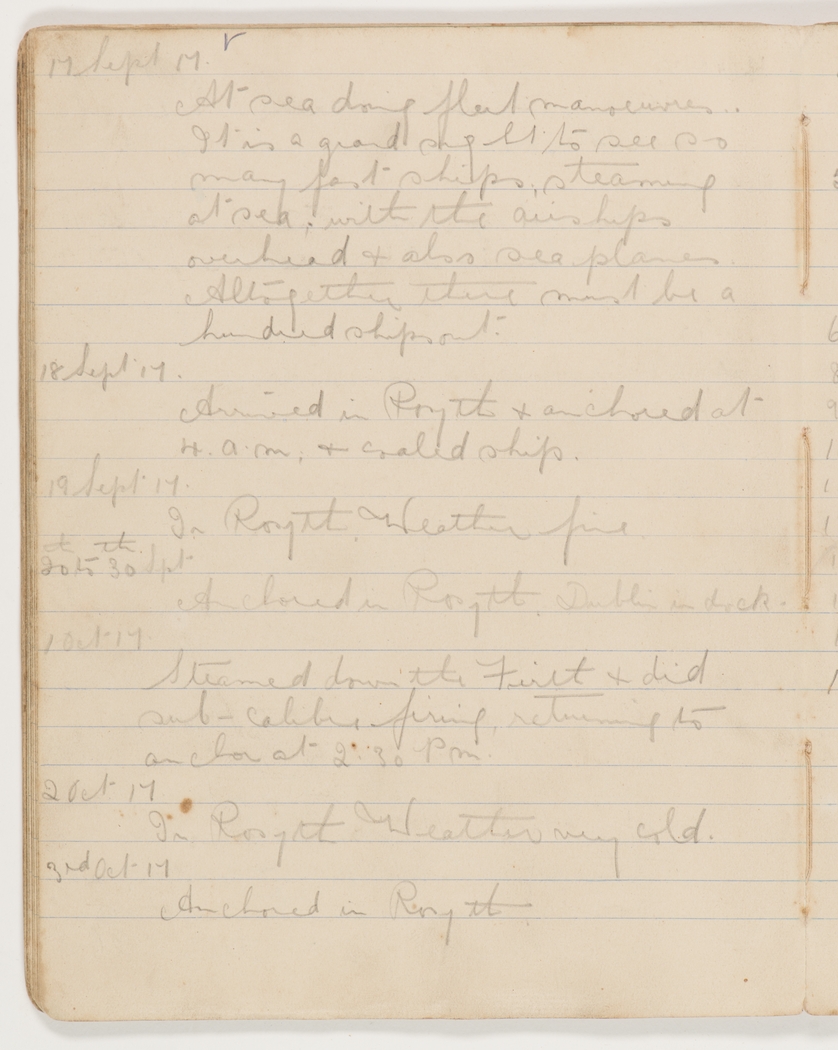 17 Sept 17.
At sea doing fleet manoeuvres..
It is a grand sight to see so
many fast ships, steaming
at sea, with the airships
overhead & also sea planes.
Altogether there must be a
hundred ships out.
18 Sept 17.
Arrived in Rosyth & anchored at
4. a.m, & coaled ship.
19 Sept 17.
In Rosyth. Weather fine.
20th to 30th Spt
Anchored in Rosyth. Dublin in dock.
1 Oct 17.
Steamed down the Firth & did
sub-calibre firing, returning to
anchor at 2.30 P.m.
2 Oct 17
In Rosyth. Weather very cold.
3rd Oct 17
Anchored in Rosyth